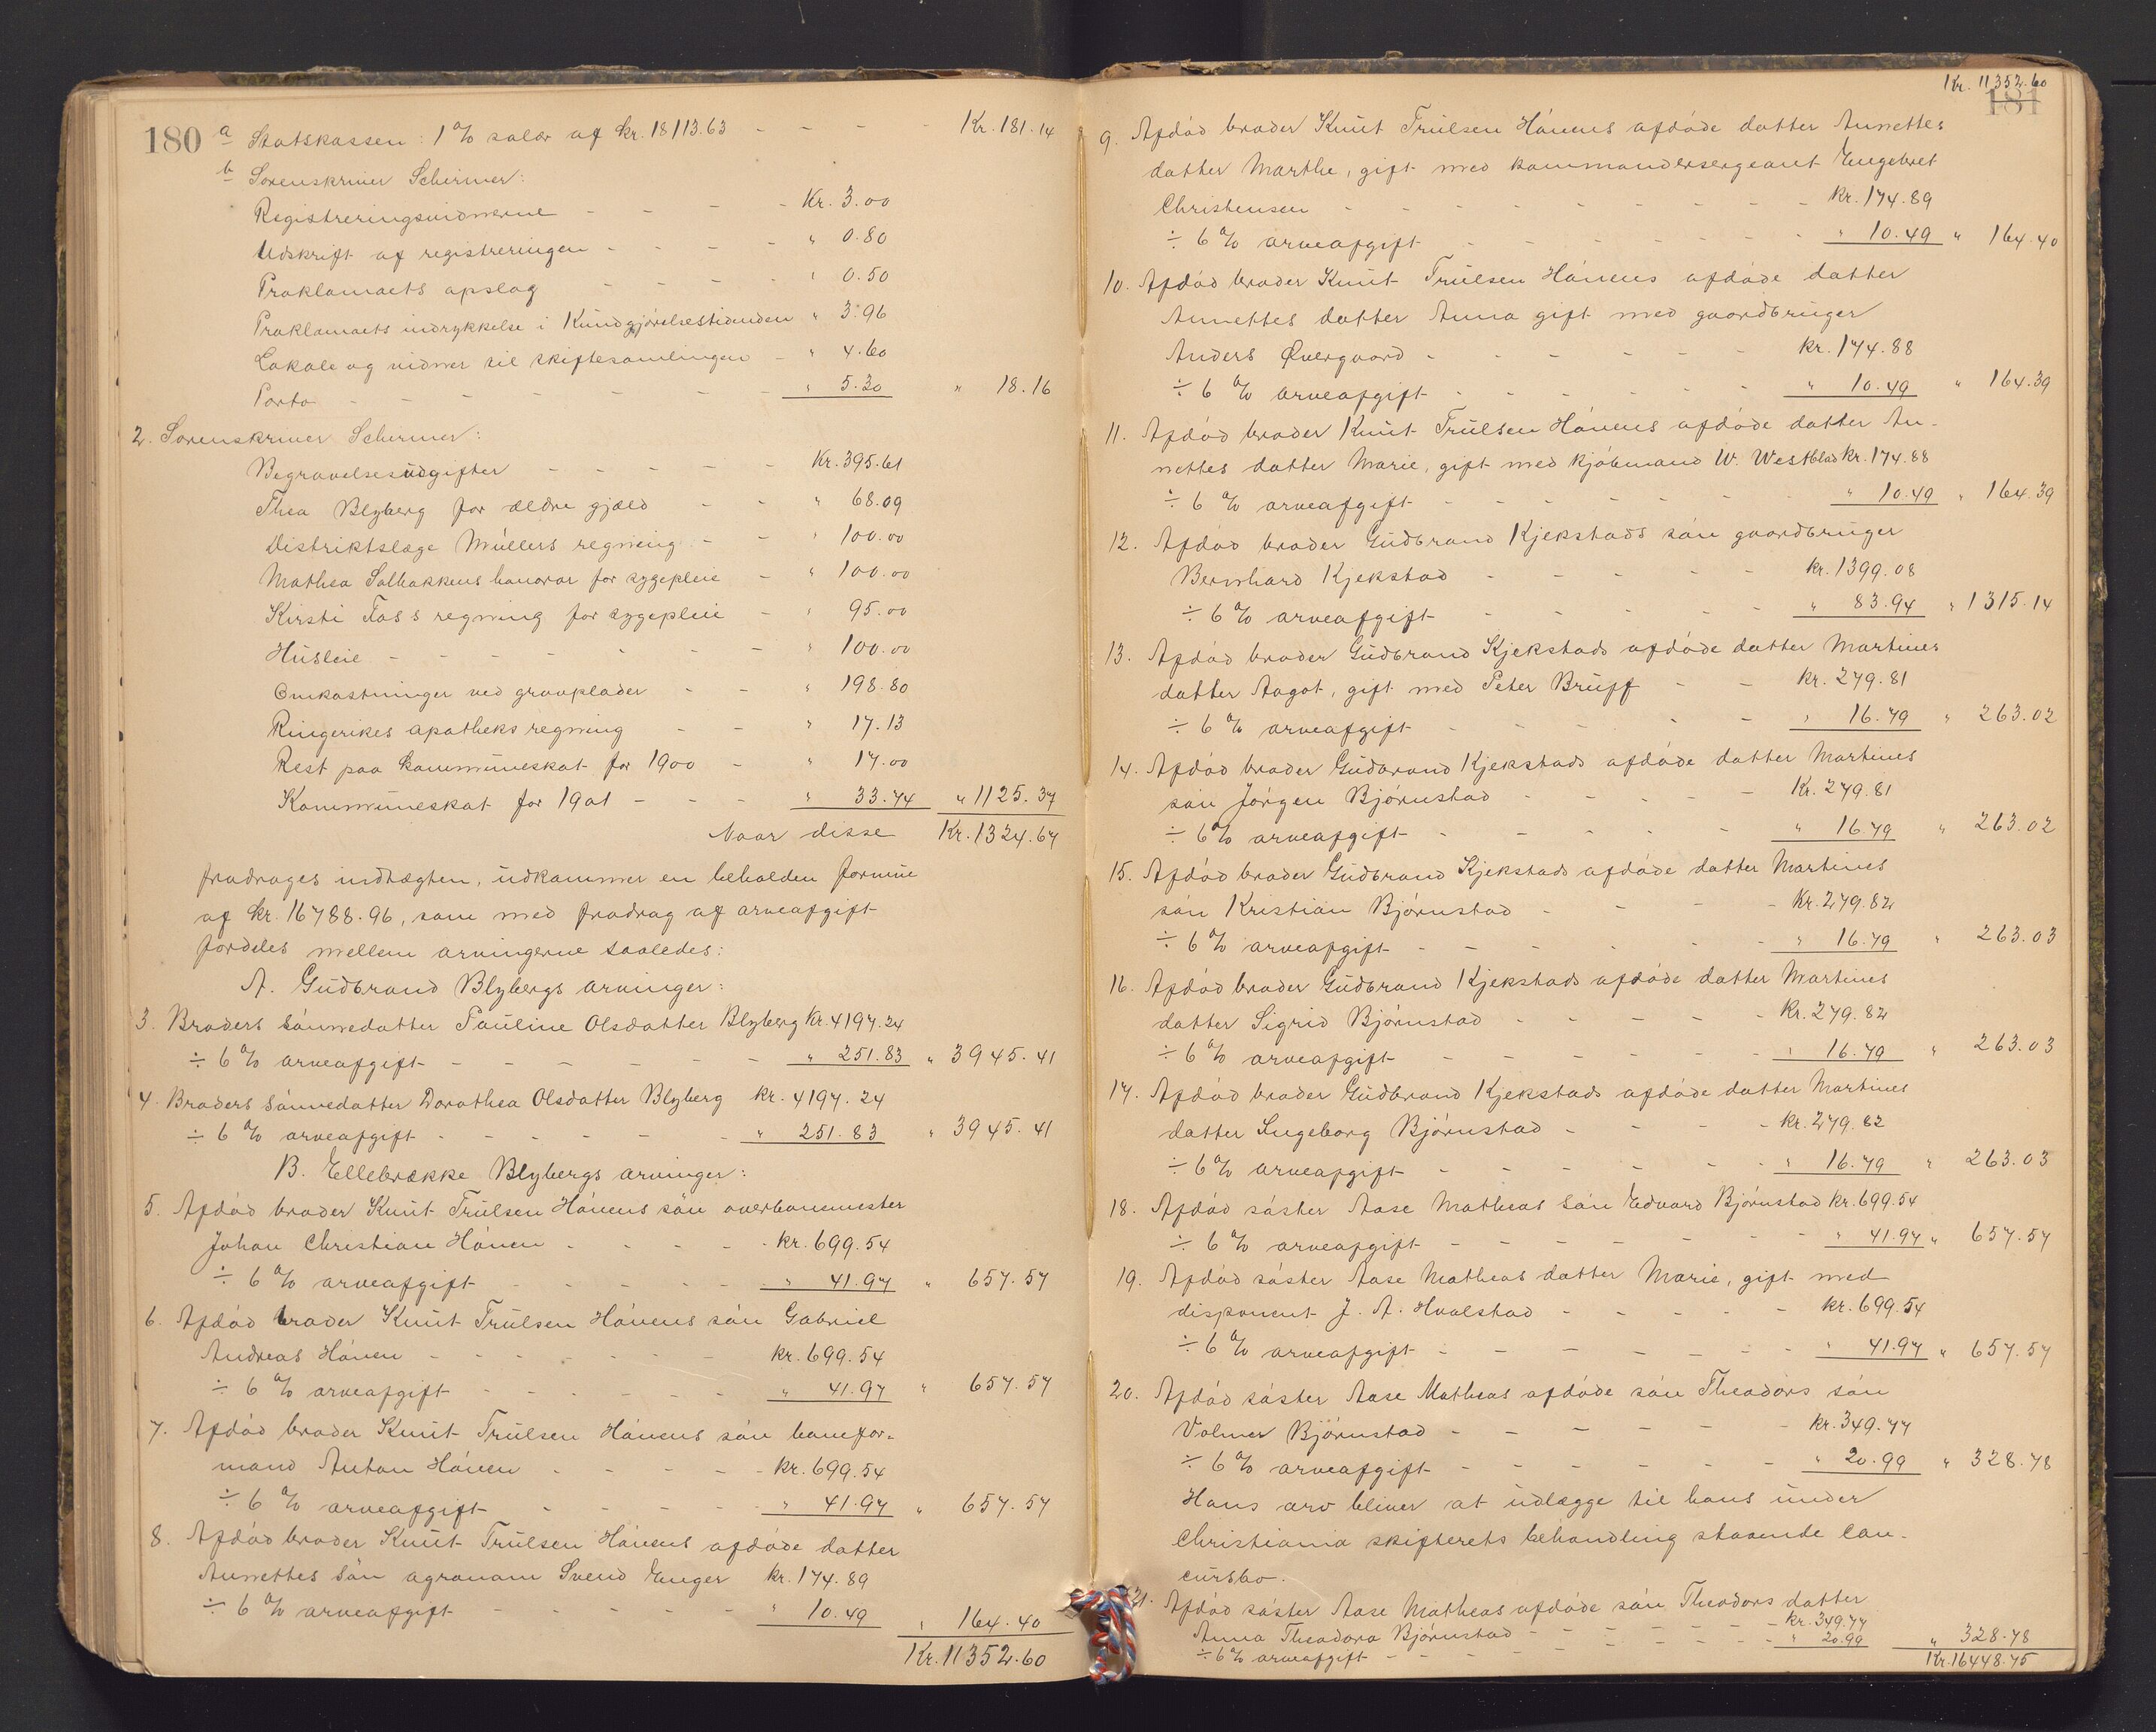 180 a Statskassen: 1 % salær af kr. 18113.63 - - - - Kr. 181.14
b Sorenskriver Schirmer:
Registreringsvidnerne - - - - Kr. 3.00
Udskrift af registreringen - - - - " 0.80
Proklamaets opslag - - - - " 0.50
Proklamaets indrykkelse i Kundgjørelsestidenden " 3.96
Lokale og vidner til skiftesamlingen - " 4.60
Porto - - - - - - - " 5.30 " 18.16
2. Sorenskriver Schirmer:
Begravelsesudgifter - - - - - Kr. 395.61
Thea Blyberg for ældre gjæld - - " 68.09
Distriktslæge Müllers regning - - " 100.00
Mathea Solbakkens honorar for sygepleie - " 100.00
Kirsti Foss regning for sygepleie - " 95.00
Husleie - - - - - - - " 100.00
Omkostninger ved gravplader - - " 198.80
Ringerikes apotheks regning - - " 17.13
Rest paa kommuneskat for 1900 - " 17.00
Kommuneskat for 1901 - - - " 33.74 " 1125.37
Naar disse Kr. 1324.67
fradrages indtægten, udkommer en beholden formue
af kr. 16788.96, som med fradrag af arveafgift
fordeles mellem arvingerne saaledes:
A. Gudbrand Blybergs arvinger:
3. Broders sønnedatter Pauline Olsdatter Blyberg Kr. 4197.24
÷ 6 % arveafgift - - - - - - " 251.83 " 3945.41
4. Broders sønnedatter Dorothea Olsdatter Blyberg kr. 4197.24
÷ 6 % arveafgift - - - - - - " 251.83 " 3945.41
B. Ellebrække Blybergs arvinger:
5. Afdød broder Knut Trulsen Hónens søn overbanemester
Johan Christian Hónen - - - - - kr. 699.54
÷ 6 % arveafgift - - - - - " 41.97 " 657.57
6. Afdød broder Knut Trulsen Hónens søn Gabriel
Andreas Hónen - - - - - - kr. 699.54
÷ 6 % arveafgift - - - - - - " 41.97 " 657.57
7. Afdød broder Knut Trulsen Hónens søn banefor-
mand Anton Hónen - - - - - kr. 699.54
÷ 6 % arveafgift - - - - - " 41.97 " 657.57
8. Afdød broder Knut Trulsen Hónens afdøde datter
Annettes søn agronom Svend Enger kr. 174.89
÷ 6 % arveafgift - - - - - " 10.49 " 164.40
Kr. 11352.60
Kr. 11352.60
181
9. Afdød broder Knut Trulsen Hónens afdøde datter Annettes
datter Marthe, gift med kommandersergeant Engebret
Christensen - - - - - - - - kr. 174.89
÷ 6 % arveafgift - - - - - - - " 10.49 " 164.40
10. Afdød broder Knut Trulsen Hónens afdøde datter
Annettes datter Anna gift med gaardbruger
Anders Øvergaard - - - - - - kr. 174.88
÷ 6 % arveafgift - - - - - - " 10.49 " 164.39
11. Afdød broder Knut Trulsen Hónens afdøde datter An-
nettes datter Marie, gift med kjøbmand W. Westblad kr. 174.88
÷ 6 % arveafgift - - - - - - - " 10.49 " 164.39
12. Afdød broder Gudbrand Kjekstads søn gaardbruger
Bernhard Kjekstad - - - - - kr. 1399.08
÷ 6 % arveafgift - - - - - - " 83.94 " 1315.14
13. Afdød broder Gudbrand Kjekstads afdøde datter Martines
datter Aagot, gift med Peter Bruff - - kr. 279.81
÷ 6 % arveafgift - - - - - " 16.79 " 263.02
14. Afdød broder Gudbrand Kjekstads afdøde datter Martines
søn Jørgen Bjørnstad - - - - - Kr. 279.81
÷ 6 % arveafgift - - - - - " 16.79 " 263.02
15. Afdød broder Gudbrand Kjekstads afdøde datter Martines
søn Kristian Bjørnstad - - - - kr. 279.82
÷ 6 % arveafgift - - - - - - " 16.79 " 263.03
16. Afdød broder Gudbrand Kjekstads afdøde datter Martines
datter Sigrid Bjørnstad - - - - - kr. 279.82
÷ 6 % arveafgift - - - - - - " 16.79 " 263.03
17. Afdød broder Gudbrand Kjekstads afdøde datter Martines
datter Ingeborg Bjørnstad - - - - kr. 279.82
÷ 6 % arveafgift - - - - - - " 16.79 " 263.03
18. Afdød søster Aase Matheas søn Edvard Bjørnstad kr. 699.54
÷ 6 % arveafgift - - - - - - - " 41.97 " 657.57
19. Afdød søster Aase Matheas datter Marie, gift med
disponent J. A. Hvalstad - - - - - kr. 699.54
÷ 6 % arveafgift - - - - - - - " 41.97 " 657.57
20. Afdød søster Aase Matheas afdøde søn Theodors søn
Volmer Bjørnstad - - - - - - kr. 349.77
÷ 6 % arveafgift - - - - - - - " 20.99 " 328.78
Hans arv bliver at udlægge til hans under
Christiania skifterets behandling staaende con-
cursbo.
21. Afdød søster Aase Matheas afdøde søn Theodors datter
Anna Theodora Bjørnstad - - - - - - kr. 349.77
÷ 6 % arveafgift - - - - " 20.99 " 328.78
Kr. 16448.75